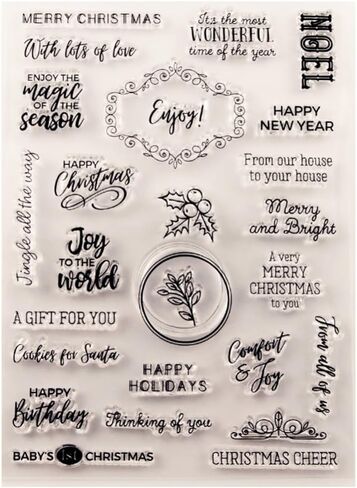 MERRY CHRISTMAS
It's the most
WONDERFUL
time of the year
NOEL
With lots of love
ENJOY THE
magic
OF THE
season
Enjoy!
HAPPY
NEW YEAR
Jingle all the way
HAPPY
Christmas
From our house
to your house
Merry
and Bright
Joy
TO THE
world
A very
MERRY
CHRISTMAS
to you
A GIFT FOR YOU
Cookies for Santa
HAPPY
HOLIDAYS
Comfort
& Joy
From all of us
HAPPY
Birthday
Thinking of you
BABY'S 1ST CHRISTMAS
CHRISTMAS CHEER